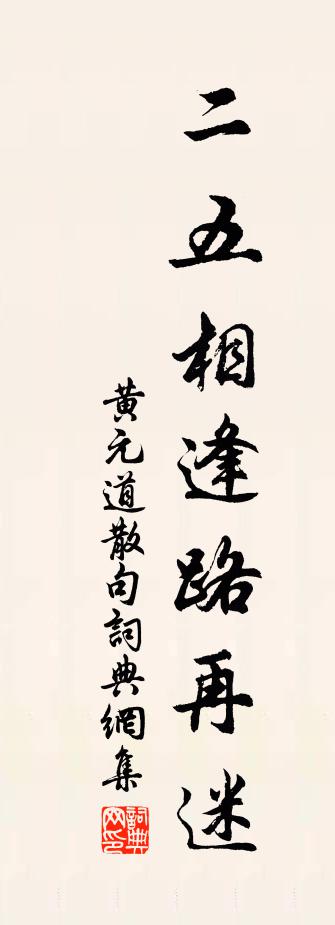 二五相逢路再迷
黄元道散句詞典網集
詞典網印